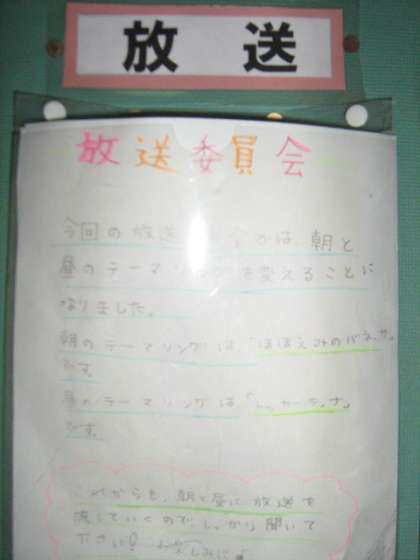 放送
放送委員会
今回の放送 会では、朝と
昼のテーマソングを変えることに
なりました。
朝のテーマソングは、「ほほえみの
です。
昼のテーマソングは、「
です。
これからも、朝と昼に放送を
流していくので、しっかり聞いて
下さい! お楽しみに